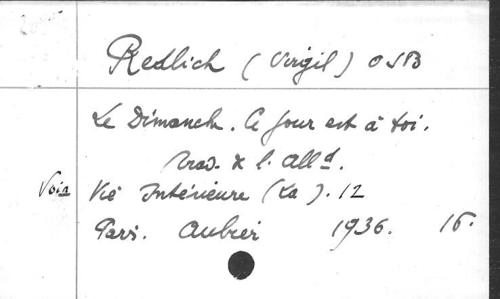 Redlich (Virgil) OSB
Le Dimanche. Ce jour est à toi.
Trad. de l'Alld.
Voir Vie Intérieure (La). 12
Paris. Aubier 1936. 16.